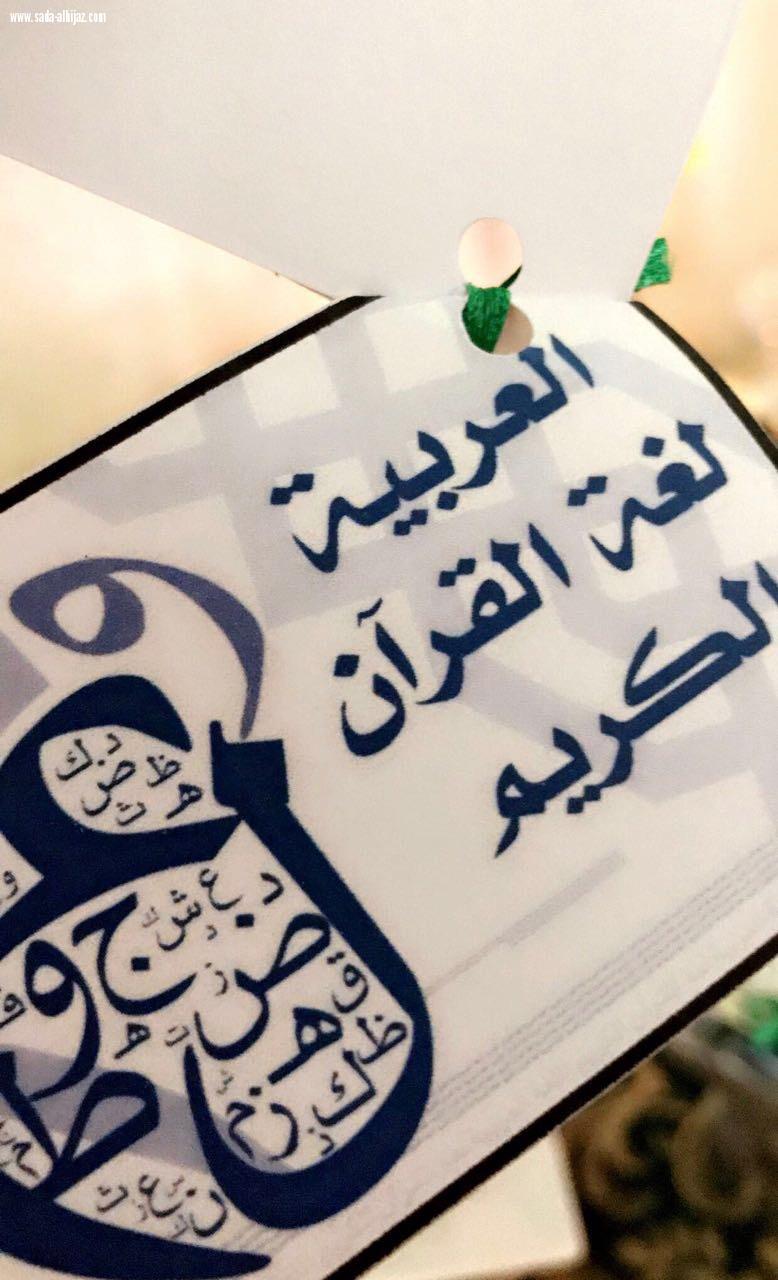 www.sada-alhijaz.com
العربية
لغة القرآن
الكريم